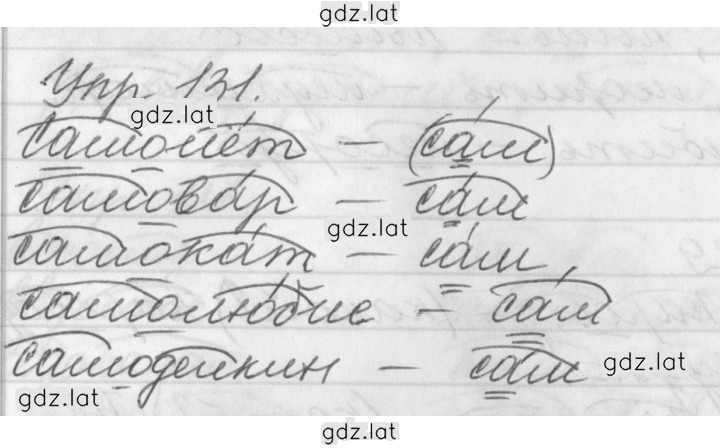 gdz.lat
Упр. 131.
gdz.lat
самолёт — (сам)
самовар — сам
gdz.lat
самокат — сам,
самолюбие — сам
самоделкин — сам
gdz.lat
gdz.lat
gdz.lat